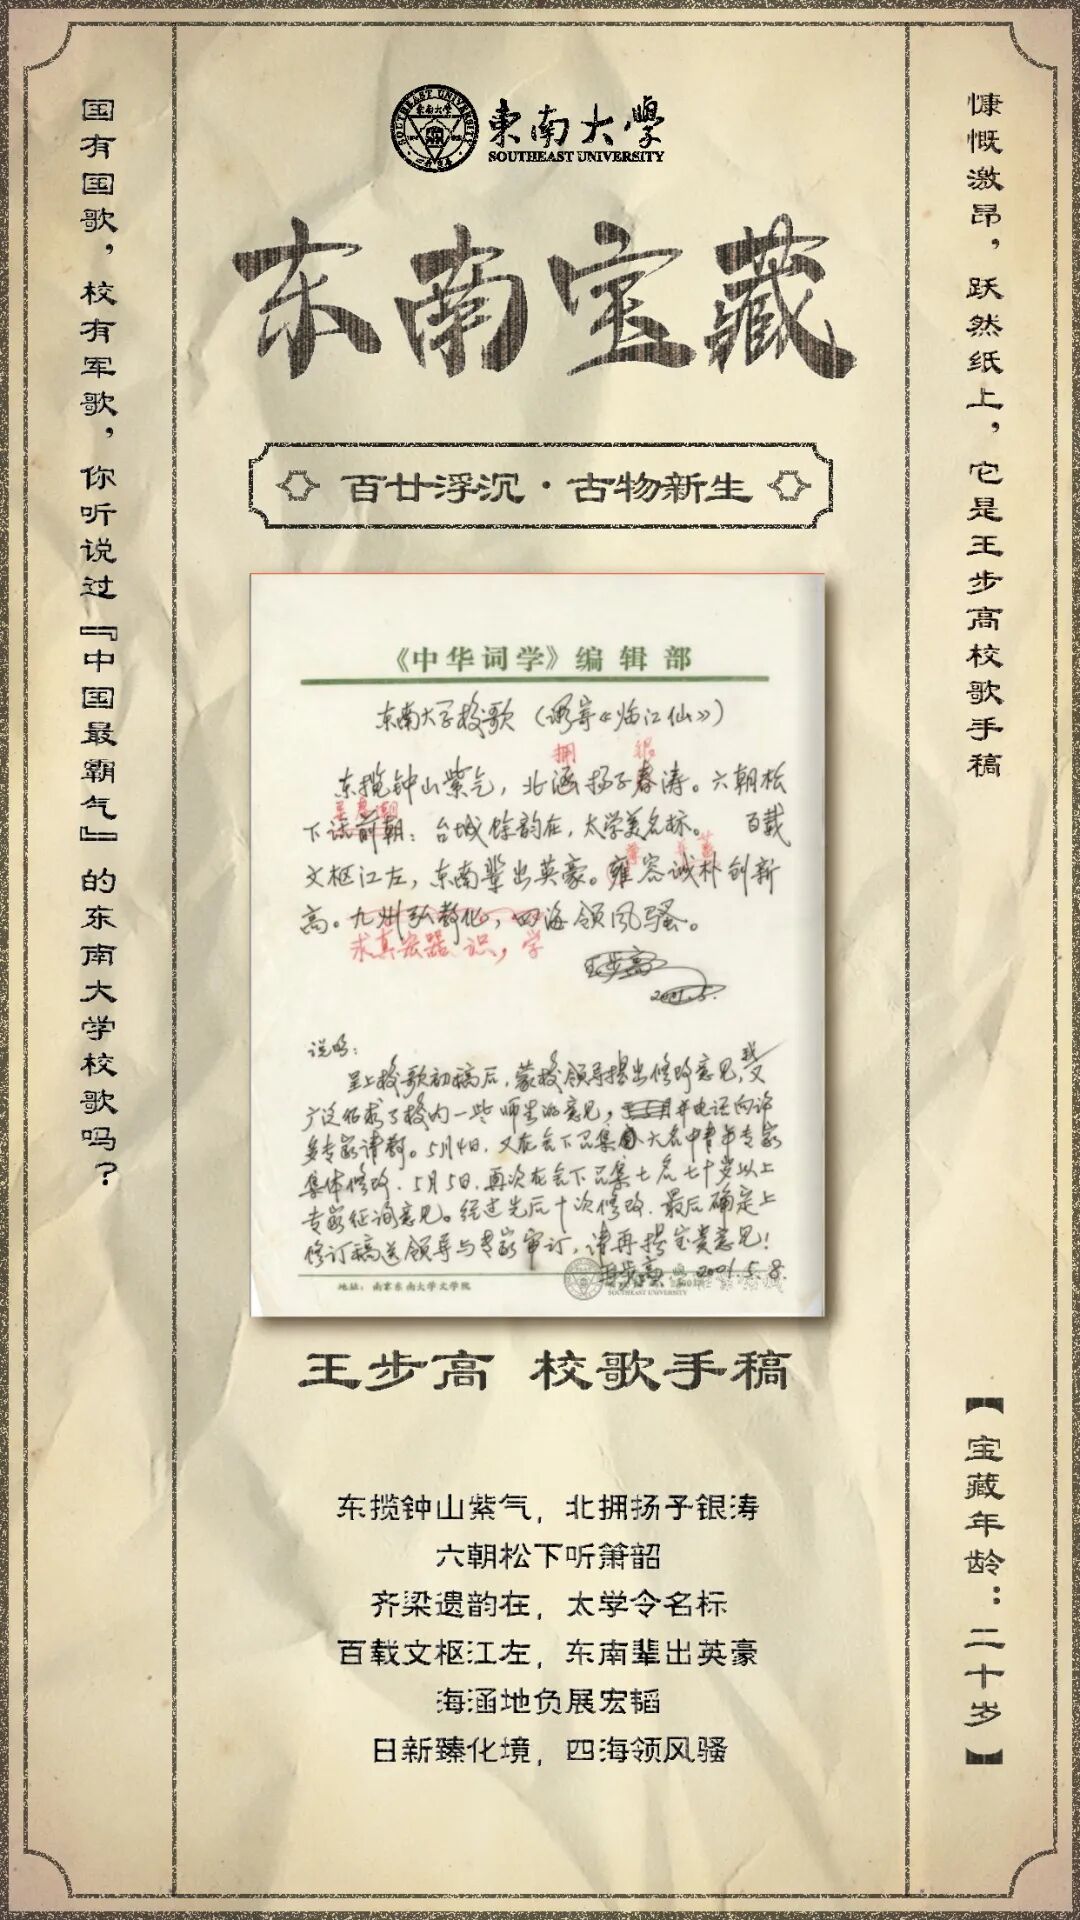 慷慨激昂，跃然纸上，它是王步高校歌手稿
【宝藏年龄：二十岁】
国有国歌，校有军歌，你听说过『中国最霸气』的东南大学校歌吗？
SOUTHEAST UNIVERSITY
東南大學
SOUTHEAST UNIVERSITY
东南宝藏
百廿浮沉·古物新生
《中华词学》编辑部
东南大学校歌（调寄《临江仙》）
拥 银
东揽钟山紫气，北涵扬子春涛。六朝松
下话前朝：台城馀韵在，太学美名标。 百载
文枢江左，东南辈出英豪。雍容诚朴创新
高。九州弘教化，四海领风骚。
求真宏器识，学
王步高
2001.5.
说明：
呈上校歌初稿后，蒙校领导提出修改意见，我又
广泛征求了校内一些师生的意见，并电话向许
多专家请教。5月4日，又在会下召集六名中青年专家
集体修改，5月5日，再次在会下召集七名七十岁以上
专家征询意见。经过先后十次修改，最后确定上
修订稿送领导与专家审订，请再提宝贵意见！
王步高 2001.5.8.
地址：南京东南大学文学院
SOUTHEAST UNIVERSITY
王步高 校歌手稿
东揽钟山紫气，北拥扬子银涛
六朝松下听箫韶
齐梁遗韵在，太学令名标
百载文枢江左，东南辈出英豪
海涵地负展宏韬
日新臻化境，四海领风骚